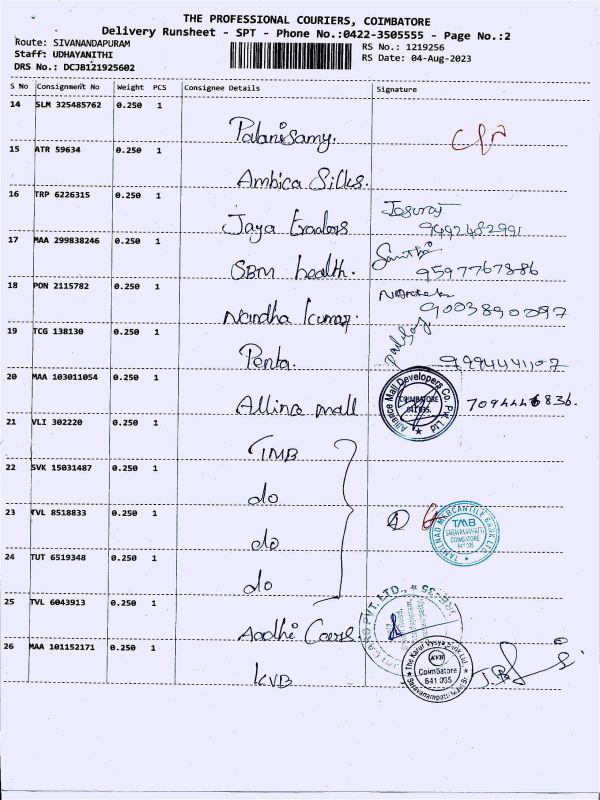 THE PROFESSIONAL COURIERS, COIMBATORE
Delivery Runsheet - SPT - Phone No.:0422-3505555 - Page No.:2
Route: SIVANANDAPURAM
RS No.: 1219256
Staff: UDHAYANITHI
RS Date: 04-Aug-2023
DRS No.: DCJB121925602
S No Consignment No Weight PCS Consignee Details Signature
14 SLM 325485762 0.250 1
Palanisamy.
15 ATR 59634 0.250 1
Ambica Silks.
16 TRP 6226315 0.250 1
Jaya traders 9492482991
17 MAA 299838246 0.250 1
SBM health. 9597767886
18 PON 2115782 0.250 1
Nandha Kumar. 9003890097
19 TCG 138130 0.250 1
Penta. 9994441107
20 MAA 103011054 0.250 1
Allince mall
Alliance Mall Developers Co. Pvt Ltd
COIMBATORE
641 035.
21 VLI 302220 0.250 1
TMB
22 SVK 15031487 0.250 1
do
23 TVL 8518833 0.250 1
do
TAMILNAD MERCANTILE BANK LTD.
TMB
SARAVANAMPATTI
COIMBATORE
641 035
24 TUT 6519348 0.250 1
do
25 TVL 6043913 0.250 1
Aadhi Cars
26 MAA 101152171 0.250 1
KVB
The Karur Vysya Bank Ltd.
KVB
Coimbatore
641 035